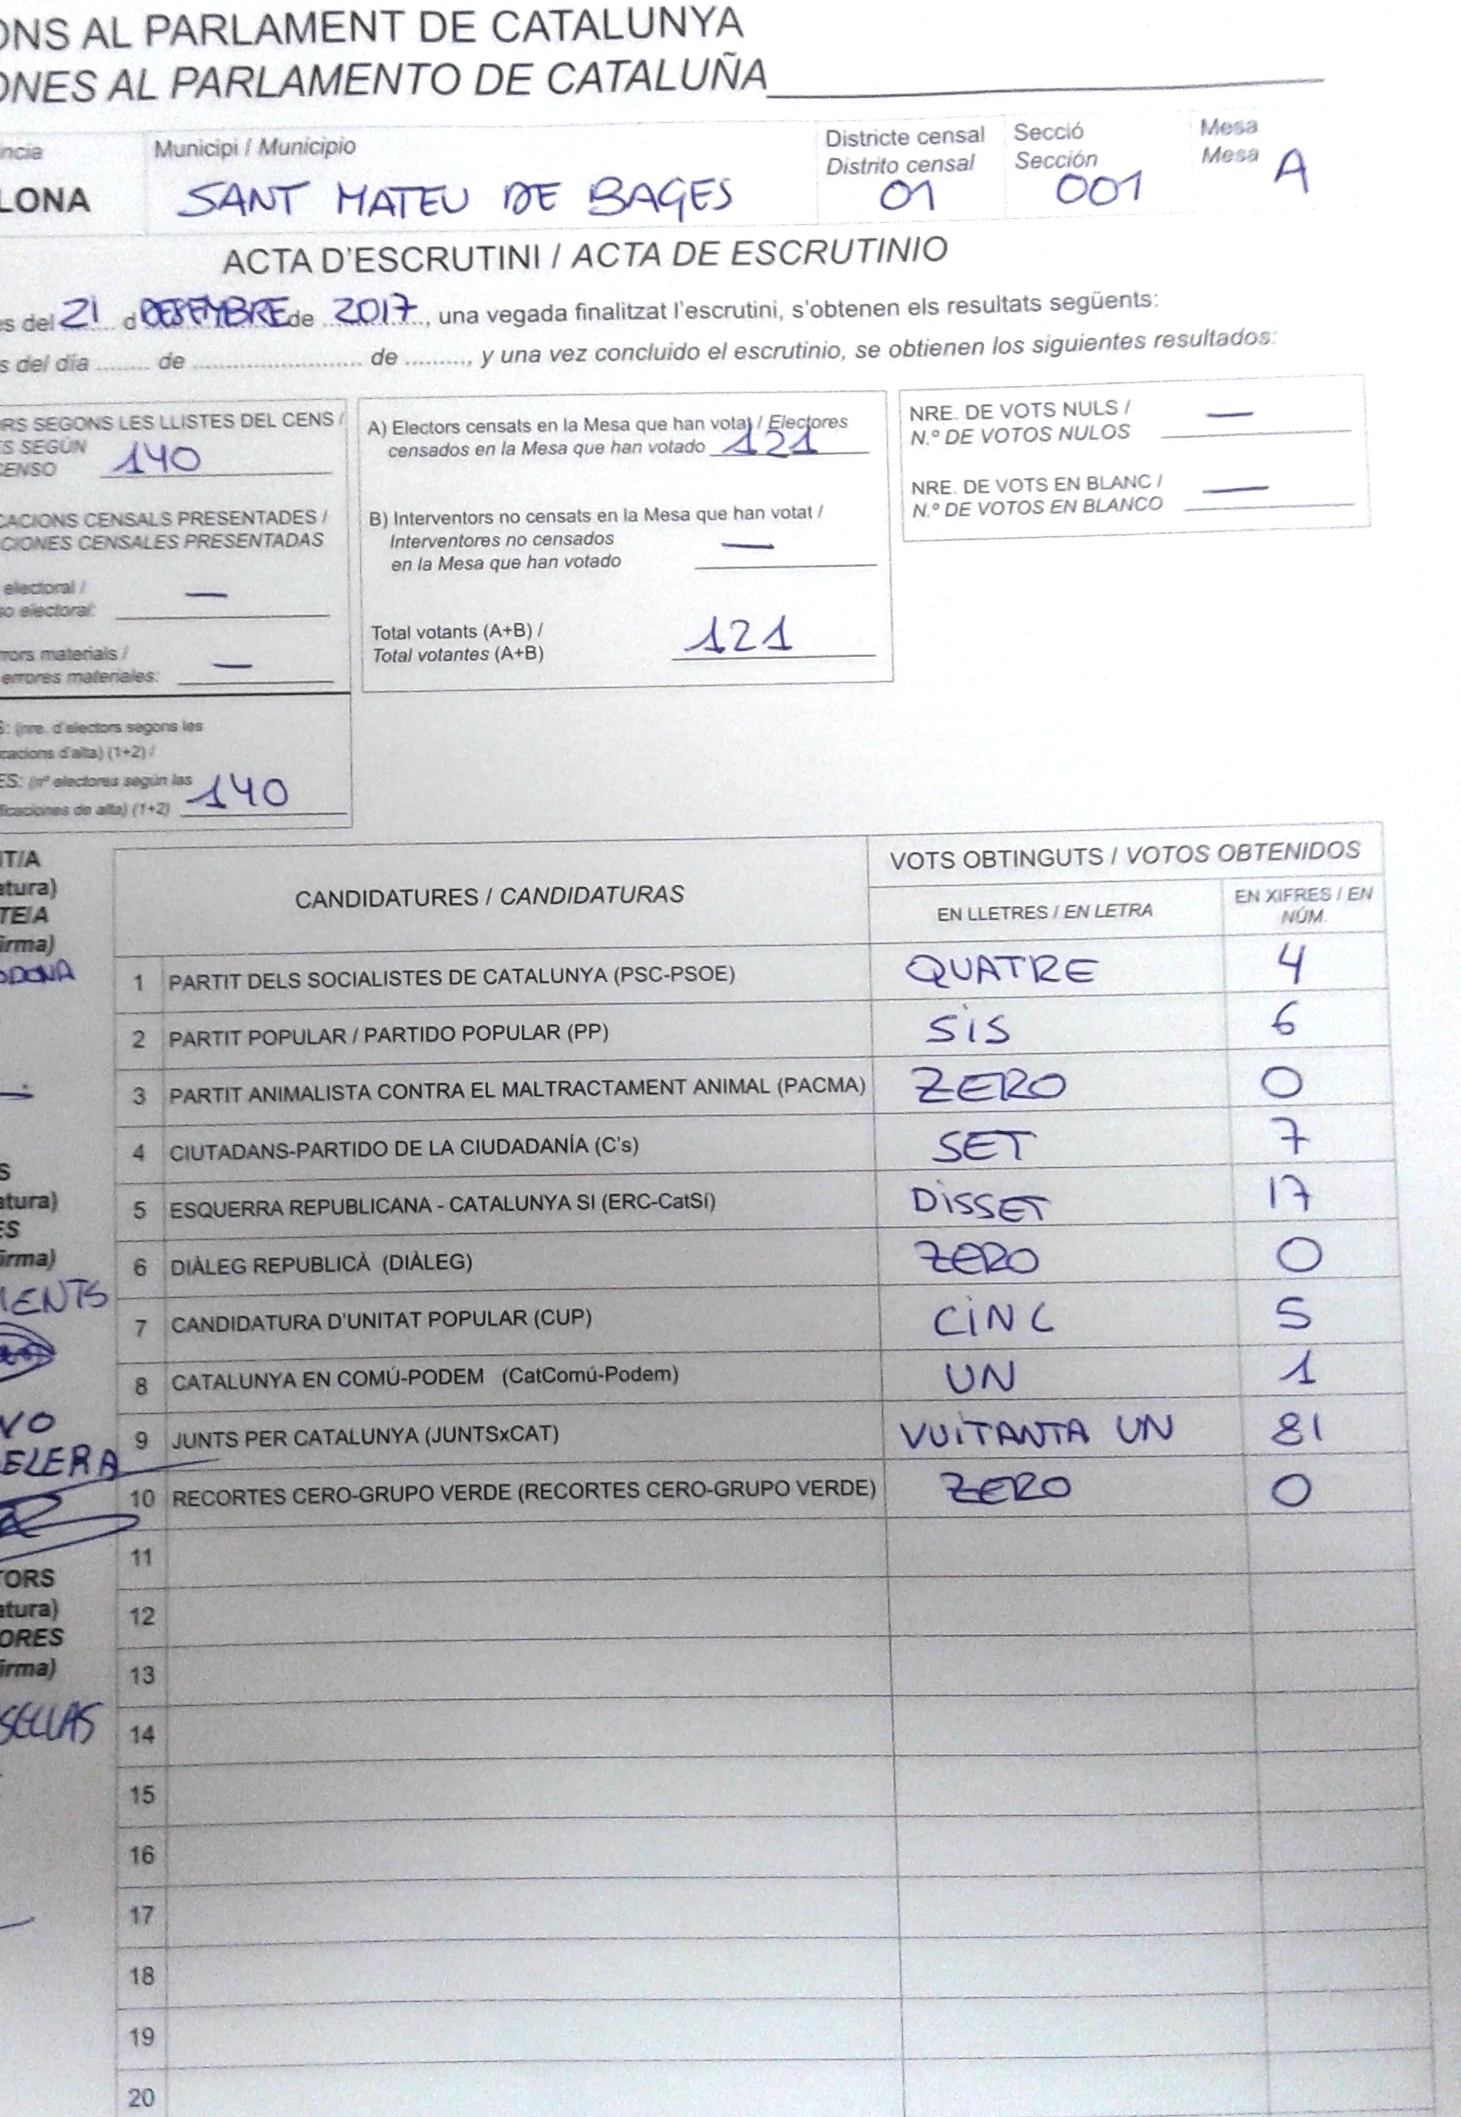 ONS AL PARLAMENT DE CATALUNYA
ONES AL PARLAMENTO DE CATALUÑA
Municipi / Municipio
LONA SANT MATEU DE BAGES
Districte censal
Distrito censal
01
Secció
Sección
001
Mesa
Mesa A
ACTA D'ESCRUTINI / ACTA DE ESCRUTINIO
es del 21 d DESEMBRE de 2017, una vegada finalitzat l'escrutini, s'obtenen els resultats següents:
s del día ........ de ........................ de ........., y una vez concluido el escrutinio, se obtienen los siguientes resultados:
RS SEGONS LES LLISTES DEL CENS /
ES SEGÚN
CENSO 140
CACIONS CENSALS PRESENTADES /
CIONES CENSALES PRESENTADAS
electoral / —
so electoral:
rrors materials / —
errores materiales:
S: (nre. d'electors segons les
icacions d'alta) (1+2) /
ES: (nº electores según las
ficaciones de alta) (1+2) 140
A) Electors censats en la Mesa que han votat / Electores
censados en la Mesa que han votado 121
B) Interventors no censats en la Mesa que han votat /
Interventores no censados —
en la Mesa que han votado
Total votants (A+B) /
Total votantes (A+B) 121
NRE. DE VOTS NULS / —
N.º DE VOTOS NULOS
NRE. DE VOTS EN BLANC / —
N.º DE VOTOS EN BLANCO
NT/A
atura)
TE/A
firma)
S
atura)
ES
firma)
MENTS
VO
ELERA
TORS
atura)
ORES
firma)
SELLAS
CANDIDATURES / CANDIDATURAS
VOTS OBTINGUTS / VOTOS OBTENIDOS
EN LLETRES / EN LETRA
EN XIFRES / EN
NÚM.
1 PARTIT DELS SOCIALISTES DE CATALUNYA (PSC-PSOE) QUATRE 4
2 PARTIT POPULAR / PARTIDO POPULAR (PP) SIS 6
3 PARTIT ANIMALISTA CONTRA EL MALTRACTAMENT ANIMAL (PACMA) ZERO 0
4 CIUTADANS-PARTIDO DE LA CIUDADANÍA (C's) SET 7
5 ESQUERRA REPUBLICANA - CATALUNYA SI (ERC-CatSí) DISSET 17
6 DIÀLEG REPUBLICÀ (DIÀLEG) ZERO 0
7 CANDIDATURA D'UNITAT POPULAR (CUP) CINC 5
8 CATALUNYA EN COMÚ-PODEM (CatComú-Podem) UN 1
9 JUNTS PER CATALUNYA (JUNTSxCAT) VUITANTA UN 81
10 RECORTES CERO-GRUPO VERDE (RECORTES CERO-GRUPO VERDE) ZERO 0
11
12
13
14
15
16
17
18
19
20